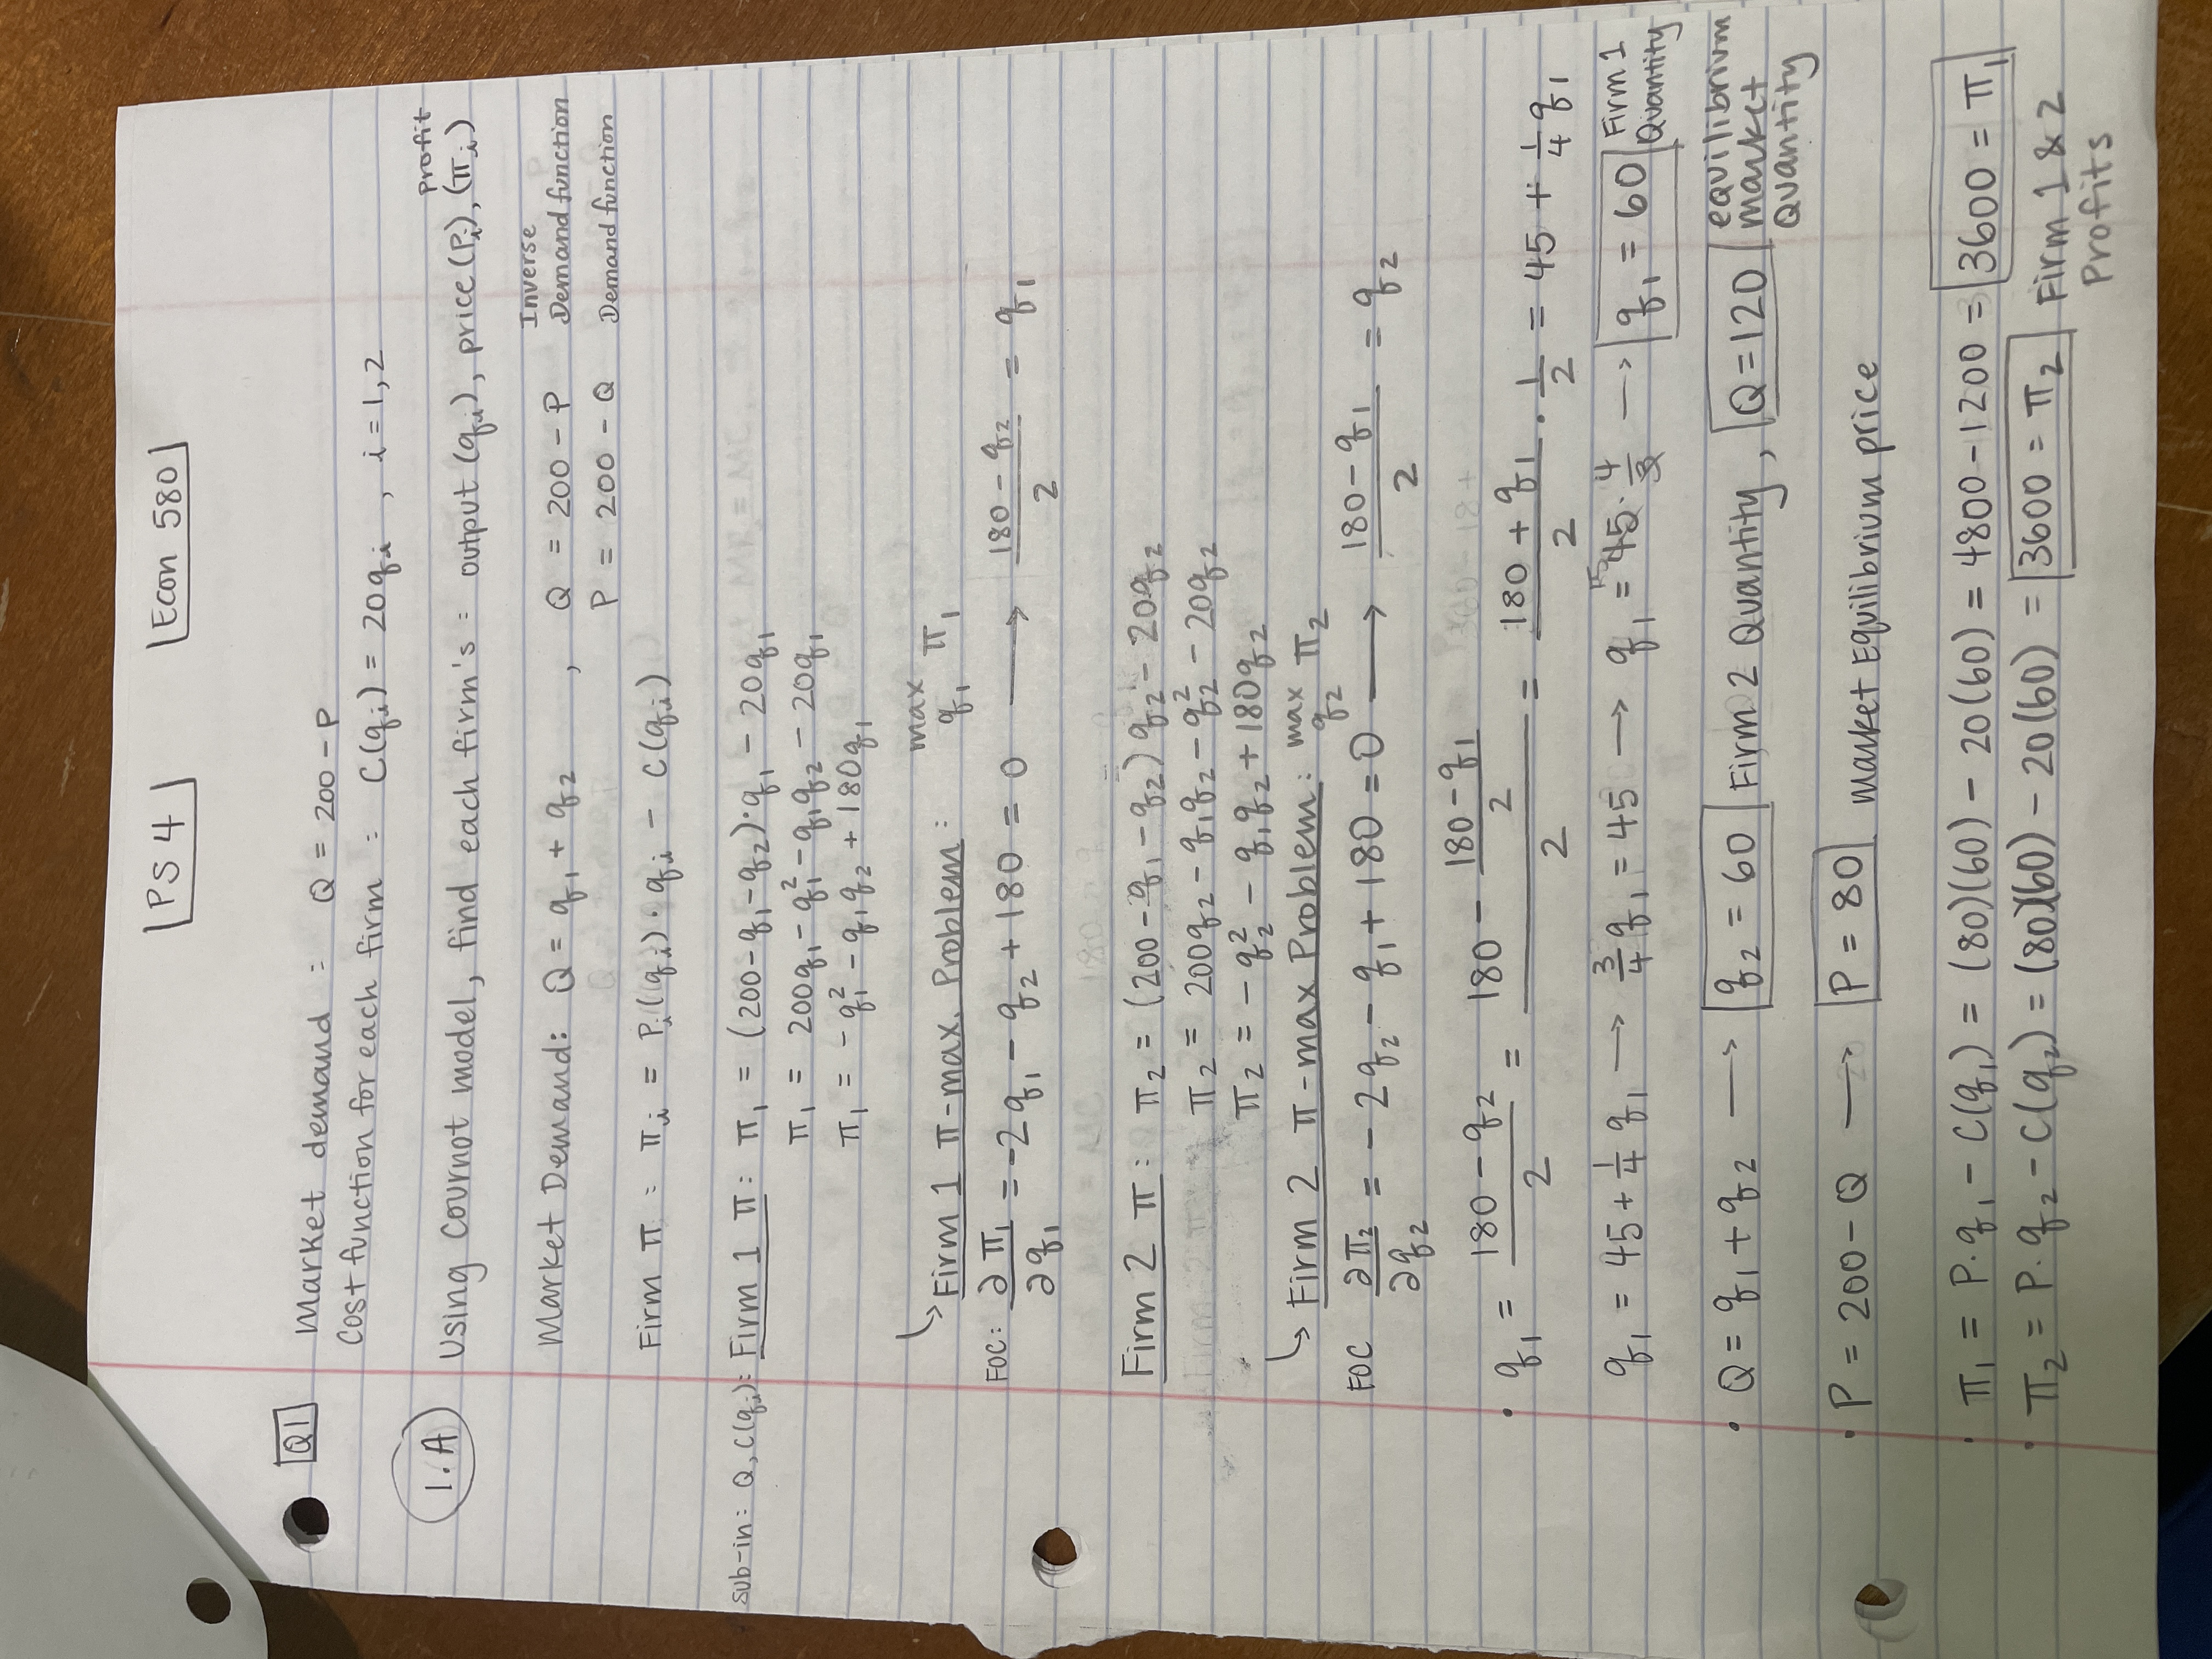 PS 4 Econ 580
Q1 Market demand : Q = 200 - P
Cost function for each firm : C(qi) = 20qi , i = 1,2
1.A Using Cournot model, find each firm's : output (qi), price (Pi), (πi) Profit
Market Demand: Q = q1 + q2 , Q = 200 - P Inverse Demand function
P = 200 - Q Demand function
Firm π : πi = Pi(qi)·qi - C(qi)
Sub-in: Q, C(qi): Firm 1 π: π1 = (200 - q1 - q2)·q1 - 20q1
π1 = 200q1 - q1² - q1q2 - 20q1
π1 = - q1² - q1q2 + 180q1
↳ Firm 1 π-max. Problem : max q1 π1
FOC: ∂π1/∂q1 = -2q1 - q2 + 180 = 0 → (180 - q2)/2 = q1
Firm 2 π : π2 = (200 - q1 - q2)q2 - 20q2
π2 = 200q2 - q1q2 - q2² - 20q2
π2 = - q2² - q1q2 + 180q2
↳ Firm 2 π-max Problem : max q2 π2
FOC ∂π2/∂q2 = - 2q2 - q1 + 180 = 0 → (180 - q1)/2 = q2
· q1 = (180 - q2)/2 = (180 - (180 - q1)/2)/2 = (180 + q1)/2 · 1/2 = 45 + 1/4 q1
q1 = 45 + 1/4 q1 → 3/4 q1 = 45 → q1 = 45 15 · 4/3 → q1 = 60 Firm 1 Quantity
· Q = q1 + q2 → q2 = 60 Firm 2 Quantity, Q = 120 equilibrium market Quantity
· P = 200 - Q → P = 80 market Equilibrium price
· π1 = P·q1 - C(q1) = (80)(60) - 20(60) = 4800 - 1200 = 3600 = π1
· π2 = P·q2 - C(q2) = (80)(60) - 20(60) = 3600 = π2 Firm 1 & 2 Profits